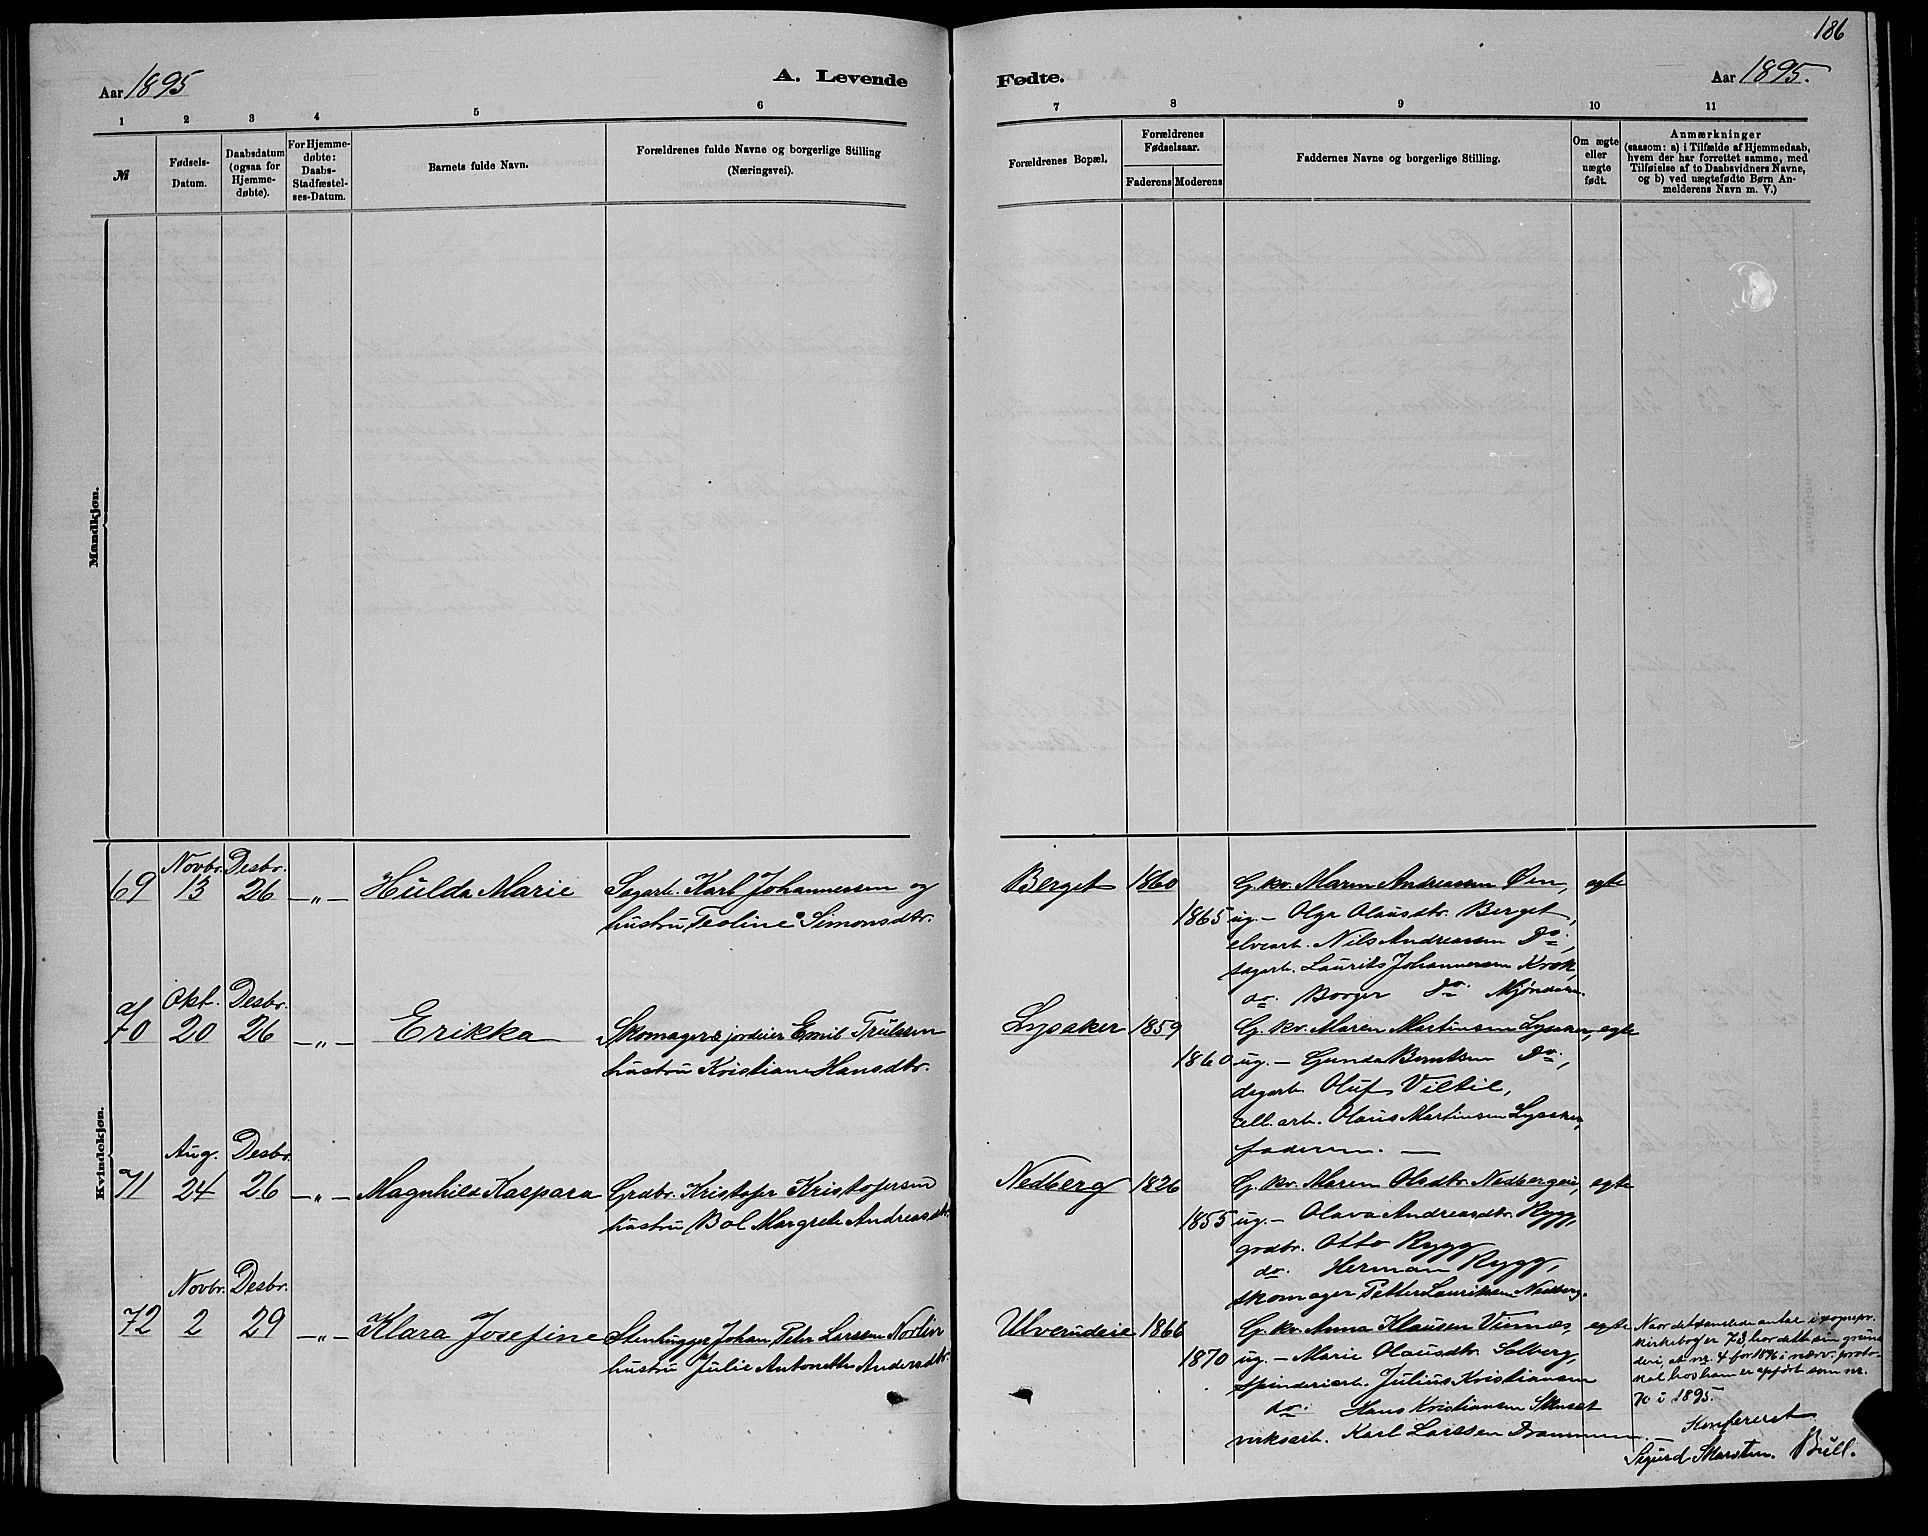 186
Aar 1895
A. Levende
Fødte.
Aar 1895.
1 2 3 4 5 6 7 8 9 10 11
№
Fødsels-
Datum.
Daabsdatum
(ogsaa for
Hjemme-
døbte).
For Hjemme-
døbte:
Daabs-
Stadfæstel-
ses-Datum.
Barnets fulde Navn.
Forældrenes fulde Navne og borgerlige Stilling
(Næringsvei).
Forældrenes Bopæl.
Forældrenes
Fødselsaar.
Faderens
Moderens
Faddernes Navne og borgerlige Stilling.
Om ægte
eller
uægte
født.
Anmærkninger
(saasom: a) i Tilfælde af Hjemmedaab,
hvem der har forrettet samme, med
Tilføielse af to Daabsvidners Navne,
og b) ved uægtefødte Børn An-
melderens Navn m. V.)
Mandkjøn.
Kvindekjøn.
Novbr. Desbr.
69 13 26 —„— Hulda Marie Sagarb. Karl Johannessen og
hustru Teoline Simonsdtr.
Berget 1860 G. kv. Maren Andreassen Øen, egte
1865 ug. — Olga Olausdtr. Berget,
elvearb. Nils Andreassen do.,
sagarb. Laurits Johannessen Krok,
do. Borger do. Mjøndalen.
Okt. Desbr.
70 20 26 —„— Erikka Skomager & jordeier Emil Trulsen
hustru Kristiane Hansdtr.
Lysaker 1859 G. kv. Maren Martinsen Lysaker, egte
1860 ug. — Gunda Berntsen do.,
dagarb. Oluf Viltil,
cell. arb. Olaus Martinsen Lysaker,
faderen. —
Aug. Desbr.
71 24 26 —„— Magnhild Kaspara Grdbr. Kristofer Kristofersen
hustru Bol Margrete Andreasdtr.
Nedberg 1826 G. kv. Maren Olsdtr. Nedbergeie, egte
1855 ug. — Olava Andreasdtr. Rygg,
grdbr. Otto Rygg
do. Herman Rygg,
skomager Petter Lauritsen Nedberg.
Novbr. Desbr.
72 2 29 —„— Klara Josefine Stenhugger Johan Petr Larssen Norlin
hustru Julie Antonette Andersdtr.
Ulverudeie 1866 G. kv. Anna Klausen Viernes, egte
1870 ug. — Marie Olausdtr. Solberg,
spinderiarb. Julius Kristiansen
do. Hans Kristiansen Skuset
verksarb. Karl Larssen Drammen.
Naar det samlede antal i sognepr.
kirkebog er 73, har dette sin grund
deri, at nr. 4 for 1896 i nærv. proto-
kol hos ham er opført som nr.
70 i 1895.
Konfereret
Sigurd Marsten. Bull.